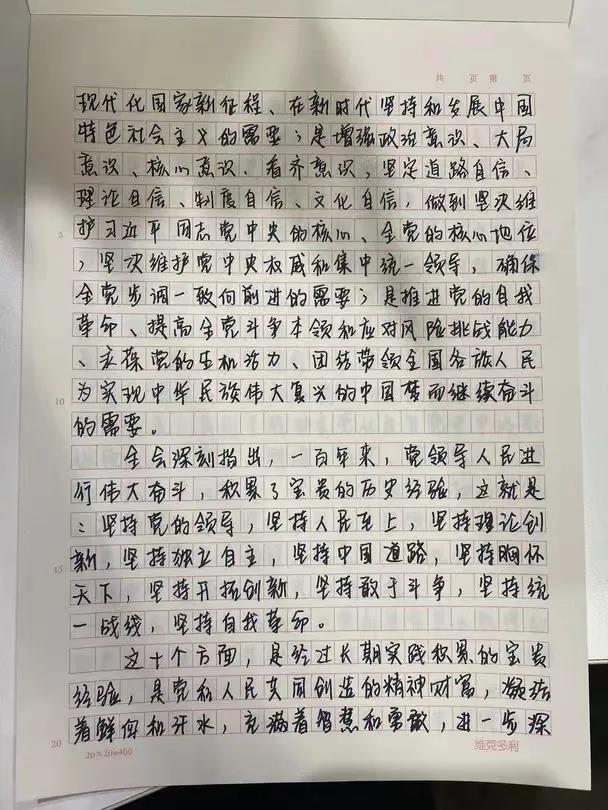 共 页 第 页
现代化国家新征程、在新时代坚持和发展中国
特色社会主义的需要；是增强政治意识、大局
意识、核心意识、看齐意识，坚定道路自信、
理论自信、制度自信、文化自信，做到坚决维
5 护习近平同志党中央的核心、全党的核心地位
，坚决维护党中央权威和集中统一领导，确保
全党步调一致向前进的需要；是推进党的自我
革命、提高全党斗争本领和应对风险挑战能力
、永葆党的生机活力、团结带领全国各族人民
10 为实现中华民族伟大复兴的中国梦而继续奋斗
的需要。
全会深刻指出，一百年来，党领导人民进
行伟大奋斗，积累了宝贵的历史经验，这就是
：坚持党的领导，坚持人民至上，坚持理论创
15 新，坚持独立自主，坚持中国道路，坚持胸怀
天下，坚持开拓创新，坚持敢于斗争，坚持统
一战线，坚持自我革命。
这十个方面，是经过长期实践积累的宝贵
经验，是党和人民共同创造的精神财富，凝结
20 着鲜血和汗水，充满着智慧和勇敢，进一步深
20×20=400 维克多利